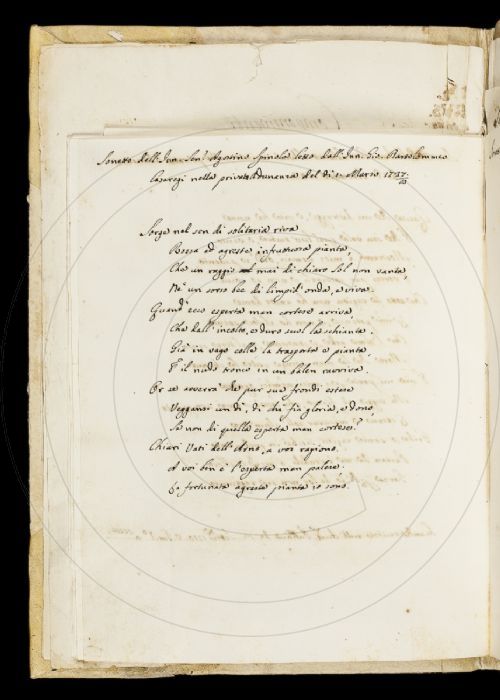 Sonetto dell' Inn. Sen.r Agostino Spinola letto dall' Inn. Gio. Bartolommeo
Casaregi nella privata Adunanza del dì 1. Marzo 1737/8
Sorge nel sen di solitaria riva
Bassa ed agreste infruttuosa pianta
Che un raggio mai di chiaro Sol non vanta,
Nè un sorso bee di limpid' onda, e viva.
Quand' ecco esperta man cortese arriva
Che dall' incolto, e duro suol la schianta.
Già in vago colle la trasporta e pianta,
E il nudo tronco in un balen ravviva.
Or se averrà che pur sue frondi estese
Veggansi un dì, di chi fia gloria, e dono,
Se non di quella esperta man cortese?
Chiari Vati dell' Arno, a voi ragiono,
A voi ben è l'esperta man palese.
La fortunata agreste pianta io sono.